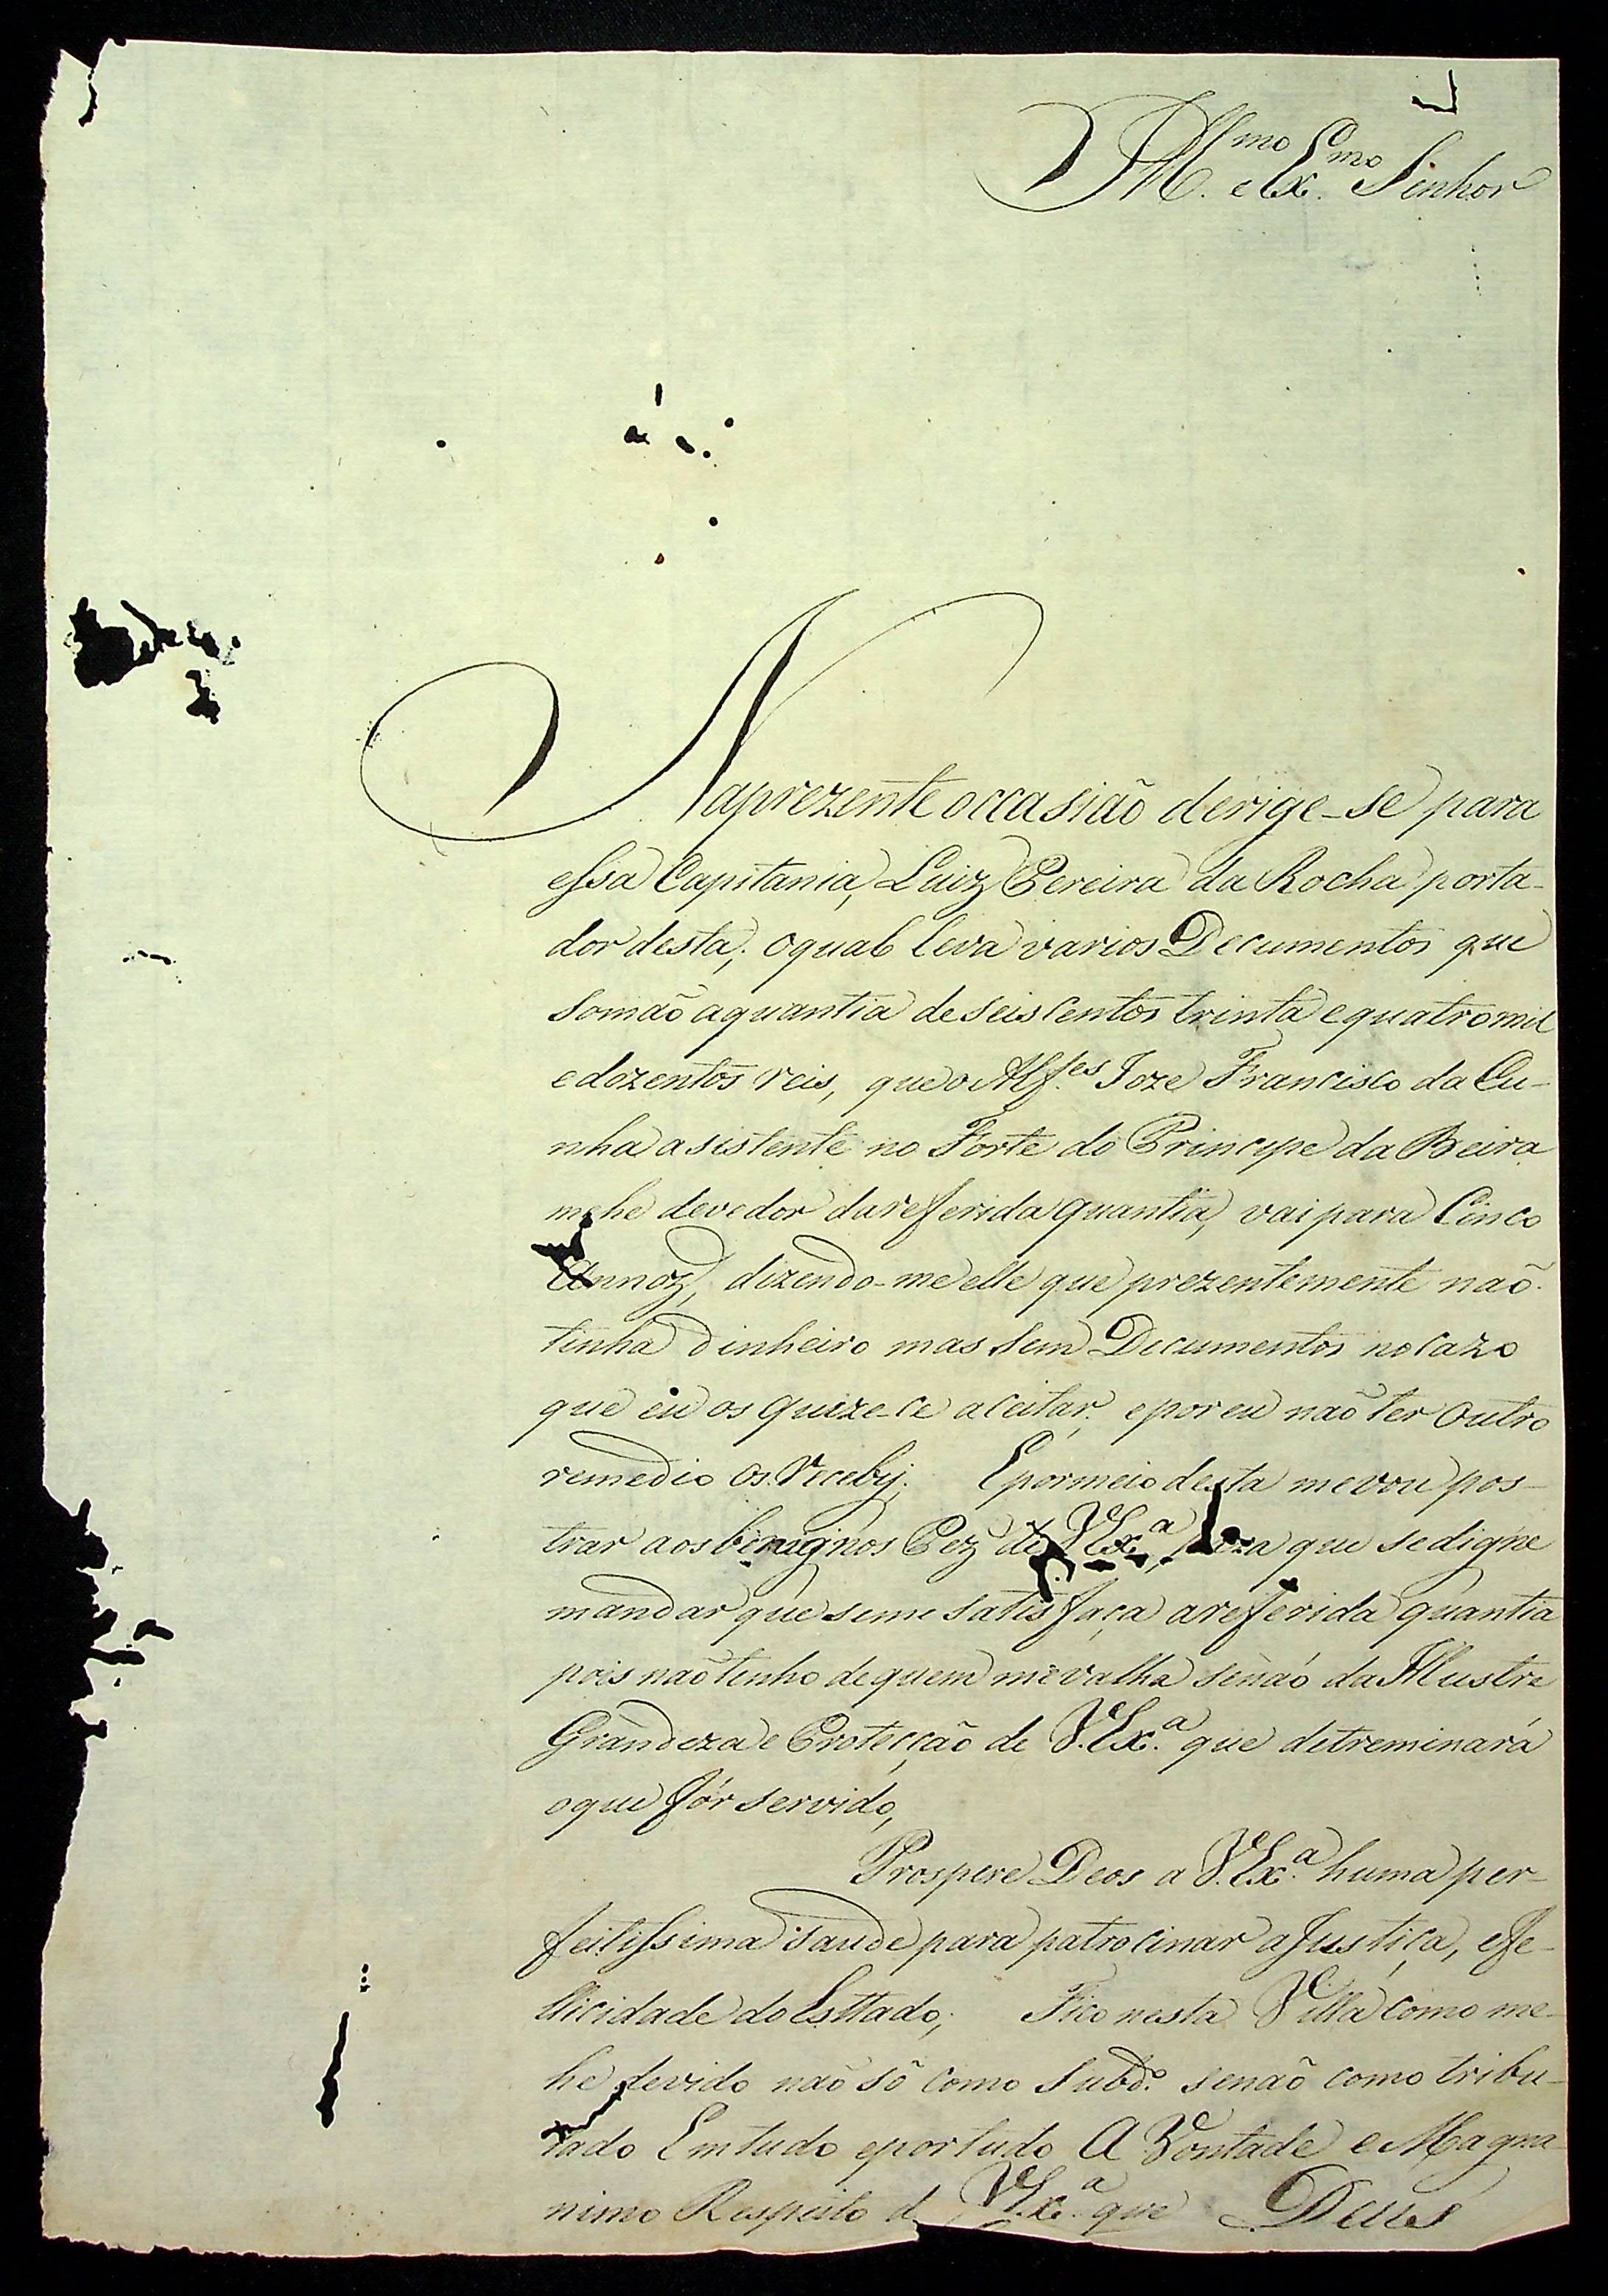 Ill.mo e Ex.mo Senhor
Na prezente occasião derige-se para
essa Capitania, Luiz Pereira da Rocha porta-
dor desta; o qual leva varios Decumentos que
somão a quantia de seis centos trinta e quatro mil
e dozentos reis, que o Alf.es Joze Francisco da Cu-
nha asistente no Forte do Principe da Beira
me he devedor da refferida quantia, vai para Cinco
Annoz, dizendo-me elle que prezentemente não
tinha dinheiro mas sem Decumentos no cazo
que eu os quize-ce aceitar, e por eu não ter outro
remedio os receby; E por meio desta me vou pos-
trar aos benignos Pez de V.Ex.a para que se digne
mandar que se me satisfaça a refferida quantia
pois não tenho de quem me valha senão da Illustre
Grandeza e Protecção de V.Ex.a que detreminará
o que fôr servido,
Prospere Deos a V.Ex.a huma per-
feitissima saude para patrocinar a Justiça, e Fe-
llicidade do Esttado; Fico nesta Villa como me
he devido não só como Subd.o senão como tribu-
tado Em tudo e por tudo A Vontade e Magna-
nimo Respeito d V.Ex.a que Deus